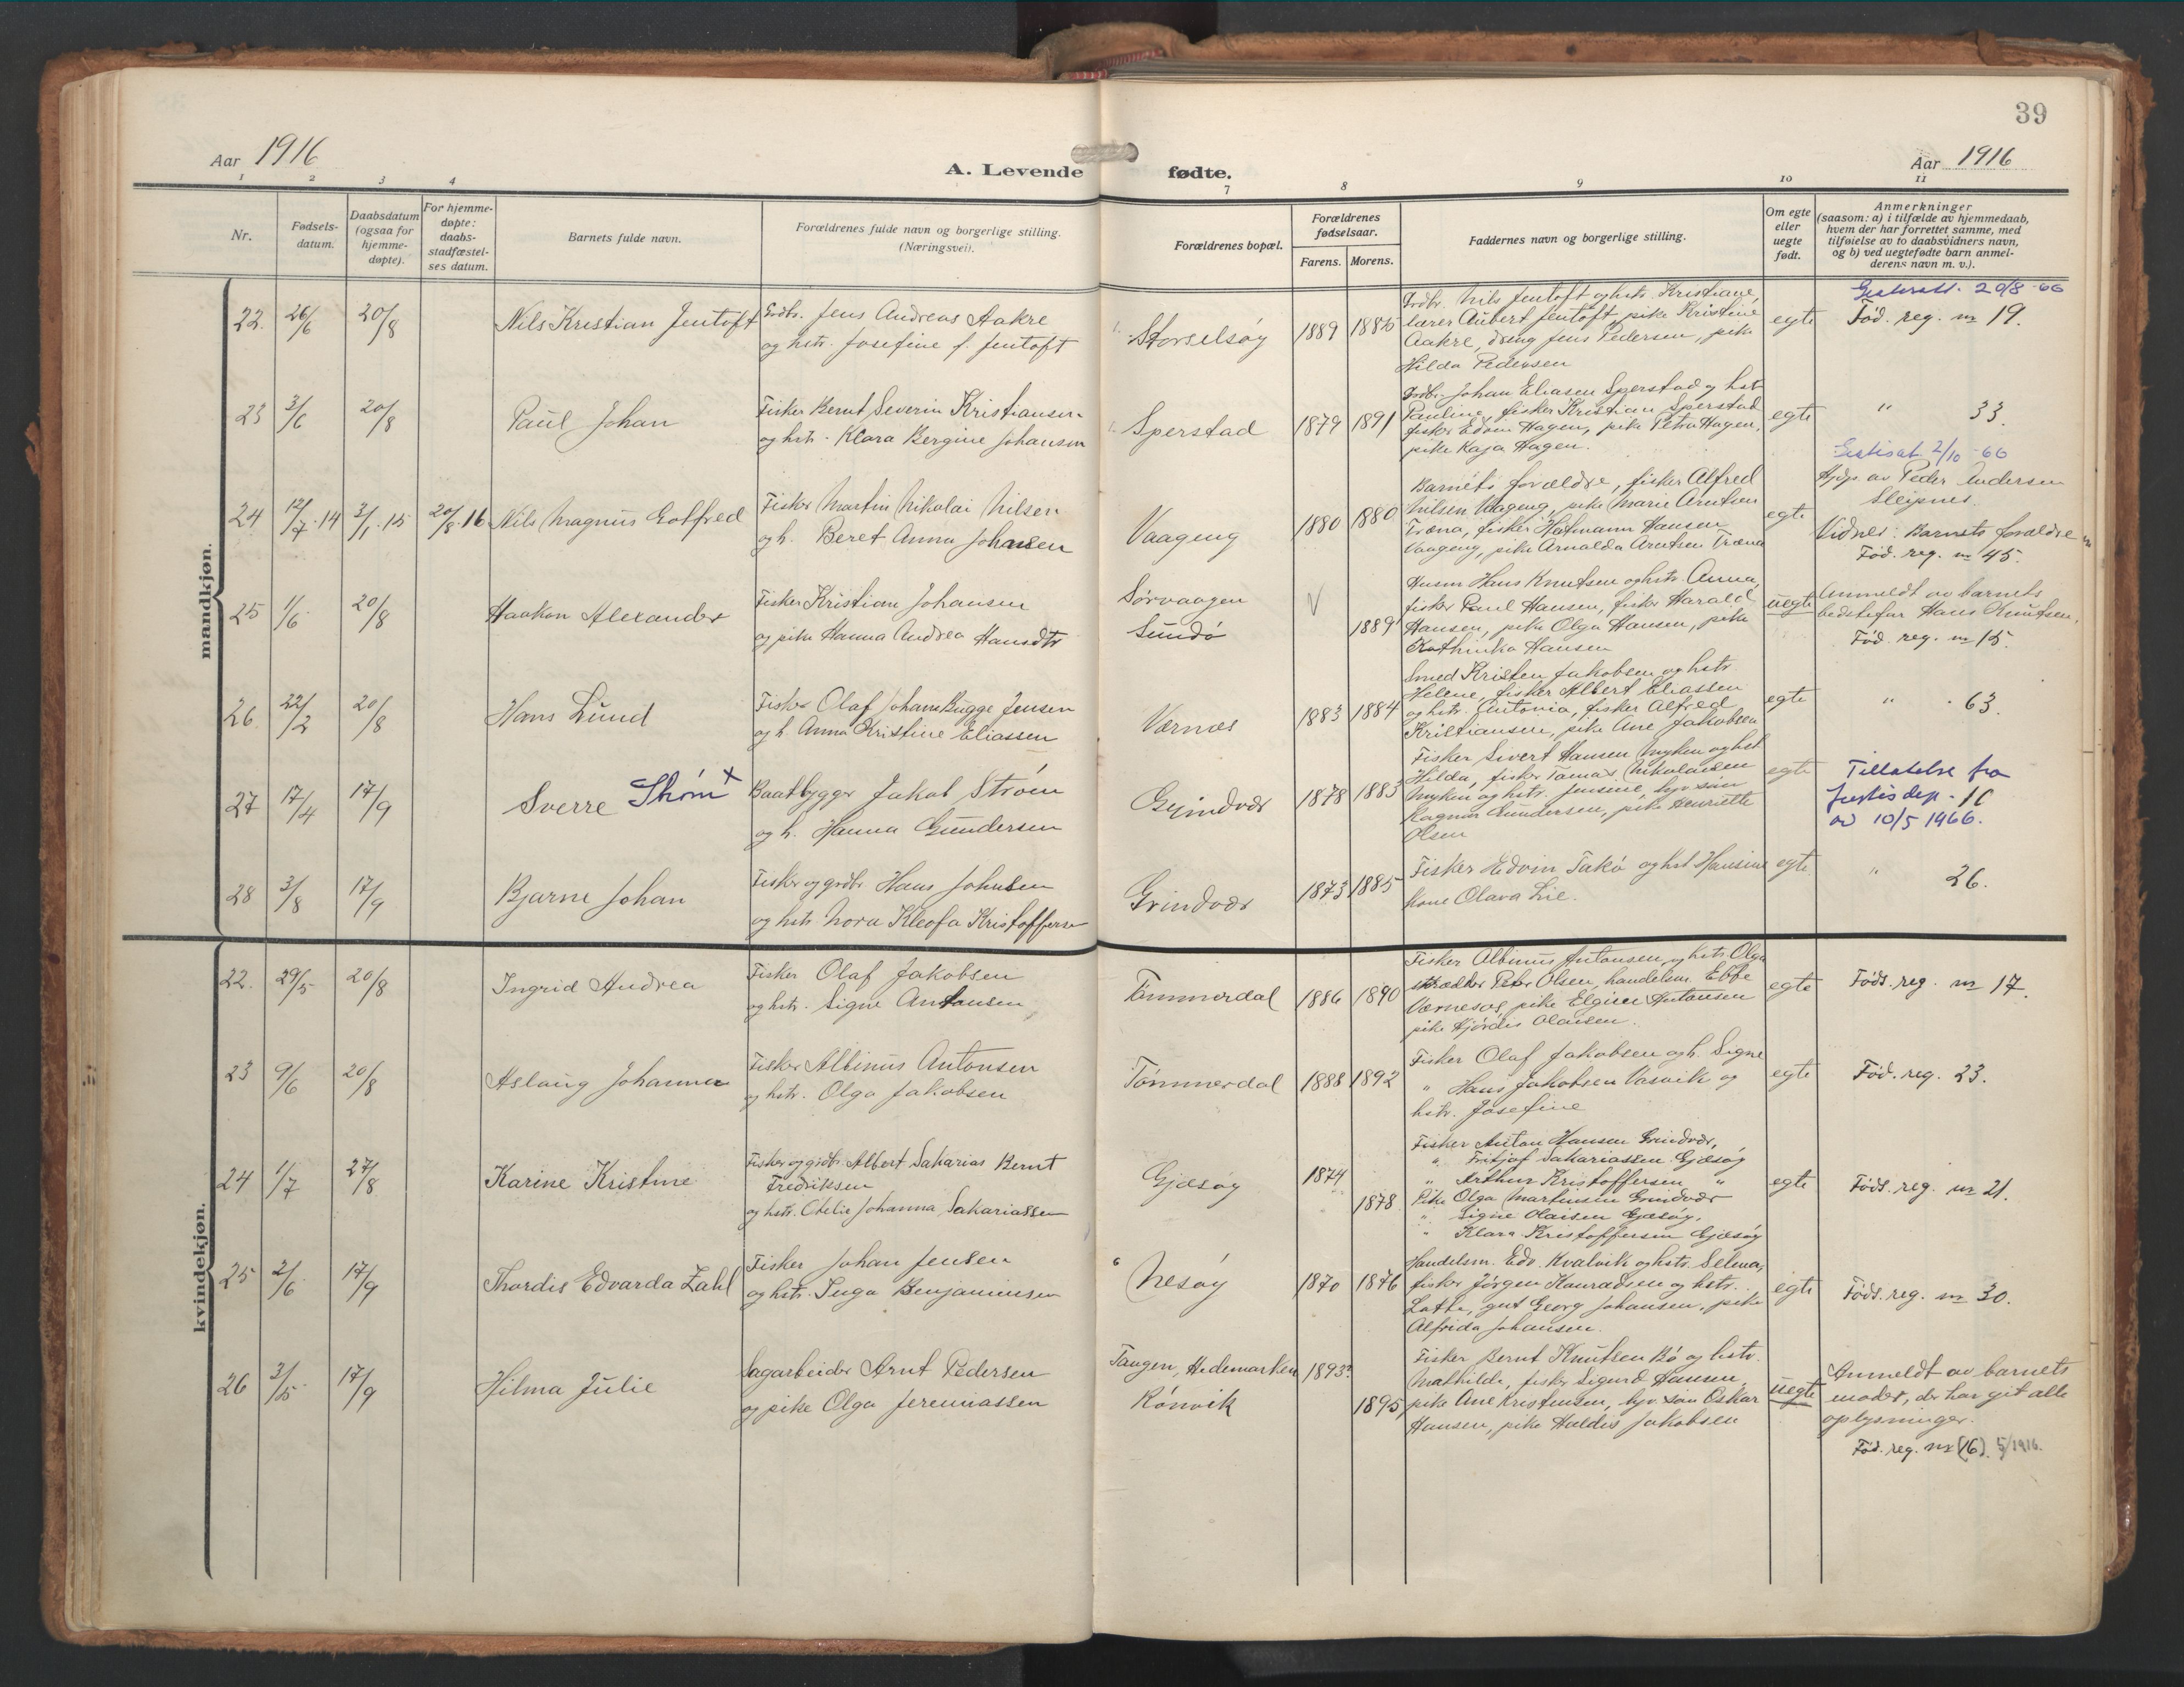 39
Aar 1916
A. Levende fødte.
Aar 1916
1 2 3 4 7 8 9 10 11
Nr.
Fødsels-
datum.
Daabsdatum
(ogsaa for
hjemme-
døpte).
For hjemme-
døpte:
daabs-
stadfæstel-
ses datum.
Barnets fulde navn.
Forældrenes fulde navn og borgerlige stilling.
(Næringsvei).
Forældrenes bopæl.
Forældrenes
fødselsaar.
Farens. Morens.
Faddernes navn og borgerlige stilling.
Om egte
eller
uegte
født.
Anmerkninger
(saasom: a) i tilfælde av hjemmedaab,
hvem der har forrettet samme, med
tilføielse av to daabsvidners navn,
og b) ved uegtefødte barn anmel-
derens navn m. v.).
mandkjøn.
22. 26/6 20/8 Nils Kristian Jentoft
Grdbr. Jens Andreas Aakre
og hstr. Josefine f. Jentoft
Storselsøy 1889 1885
Grdbr. Nils Jentoft og hstr. Kristiane,
lærer Aubert Jentoft, pike Kristine
Aakre, dreng Jens Pedersen, pike
Hilda Pedersen
egte
20/8-66
Fød. reg. nr 19.
23 3/6 20/8 Paul Johan
Fisker Bernt Severin Kristiansen
og hstr. Klara Bergine Johansen
Sperstad 1879 1891
Grdbr. Johan Eliasen Sperstad og hst
Pauline, fisker Kristian Sperstad
fisker Edvin Hagen, pike Petra Hagen,
pike Kaja Hagen.
egte
" 33.
2/10-66
24 12/7.14 3/1.15 20/8.16 Nils Magnus Gotfred
Fisker Martin Nikolai Nilsen
og h. Beret Anna Johansen
Vaageng 1880 1880
Barnets forældre, fisker Alfred
Nilsen Vaageng, pike Marie Arntsen
Træna, fisker Hartmann Hansen
Vaageng, pike Arnalda Arntsen Træna
egte
Hjdp. av Peder Andersen
Sleipnes.
Vidner: Barnets forældre
Fød. reg. nr 45.
25 1/6 20/8 Haakon Alexander
Fisker Kristian Johansen
og pike Hanna Andrea Hansdtr
Sørvaagen
Sundø
1889
Husm Hans Knutsen og hstr. Anna,
fisker Paul Hansen, fisker Harald
Hansen, pike Olga Hansen, pike
Kathinka Hansen
uegte
Anmeldt av barnets
bedstefar Hans Knutsen.
Fød. reg. nr 15.
26 22/2 20/8 Hans Lund
Fisker Olaf Johan Bugge Jensen
og h. Anna Kristine Eliassen
Værnes 1883 1884
Smed Kristen Jakobsen og hstr.
Helene, fisker Albert Eliassen
og hstr. Antonia, fisker Alfred
Kristiansen, pike Ane Jakobsen
egte
" 63.
27 17/4 17/9 Sverre Strøm x
Baatbygger Jakob Strøm
og h. Hanna Gundersen
Grindvær 1878 1883
Fisker Sivert Hansen Myken og hst
Hilda, fisker Tomas Nikolaisen
Myken og hstr. Jensine, hjv. søn
Ragnar Gundersen, pike Henriette
Olsen
egte
Tillatelse fra
Justisdep. 16
av 10/5 1966.
28 3/8 17/9 Bjarne Johan
Fisker og grdbr. Hans Johnsen
og hstr Nora Kleofa Kristoffersen
Grindvær 1873 1885
Fisker Edvin Takø og hst Hansine
kone Olava Lie.
egte
" 26.
kvindekjøn.
22. 29/5 20/8 Ingrid Andrea
Fisker Olaf Jakobsen
og hstr. Signe Antonsen
Tømmerdal 1886 1890
Fisker Albinus Antonsen og hstr. Olga
skrædder Peter Olsen, handelsm. Ebbe
Værnesos, pike Elgine Antonsen
pike Hjørdis Olaisen.
egte
Føds. reg. nr 17.
23 9/6 20/8 Aslaug Johanna
Fisker Albinus Antonsen
og hstr. Olga Jakobsen
Tømmerdal 1888 1892
Fisker Olaf Jakobsen og h. Signe
" Hans Jakobsen Vasvik og
hstr. Josefine
egte
Fød. reg. 23.
24 1/7 27/8 Karine Kristine
Fisker og grdbr. Albert Sakarias Bernt
Fredriksen
og hstr. Otelie Johanna Sakariassen
Gjæsøy 1874
1878
Fisker Anton Hansen Grindvær,
" Fritjof Sakariassen Gjæsøy
" Arthur Kristoffersen "
Pike Olga Martinsen Grindvær
" Signe Olaisen Gjæsøy,
" Klara Kristoffersen Gjæsøy
egte
Føds. reg. nr 21.
25 2/6 17/9 Thordis Edvarda Zahl
Fisker Johan Jensen
og hstr. Inga Benjaminsen
Nesøy 1870 1876
Handelsm. Edv. Kvalvik og hstr. Selma,
fisker Jørgen Konradsen og hstr.
Lotte, gut Georg Johansen, pike
Alfrida Johansen.
egte
Føds. reg. nr 30.
26 3/5 17/9 Hilma Julie
Sagarbeider Arnt Pedersen
og pike Olga Jeremiassen
Tangen, Hedemarken 1893?
Rønvik 1895
Fisker Bernt Knutsen Bø og hstr.
Mathilde, fisker Sigurd Hansen,
pike Ane Kristensen, hjv. søn Oskar
Hansen, pike Haldis Jakobsen
uegte
Anmeldt av barnets
moder, der har git alle
oplysninger.
Fød. reg. nr (16) 5/1916.